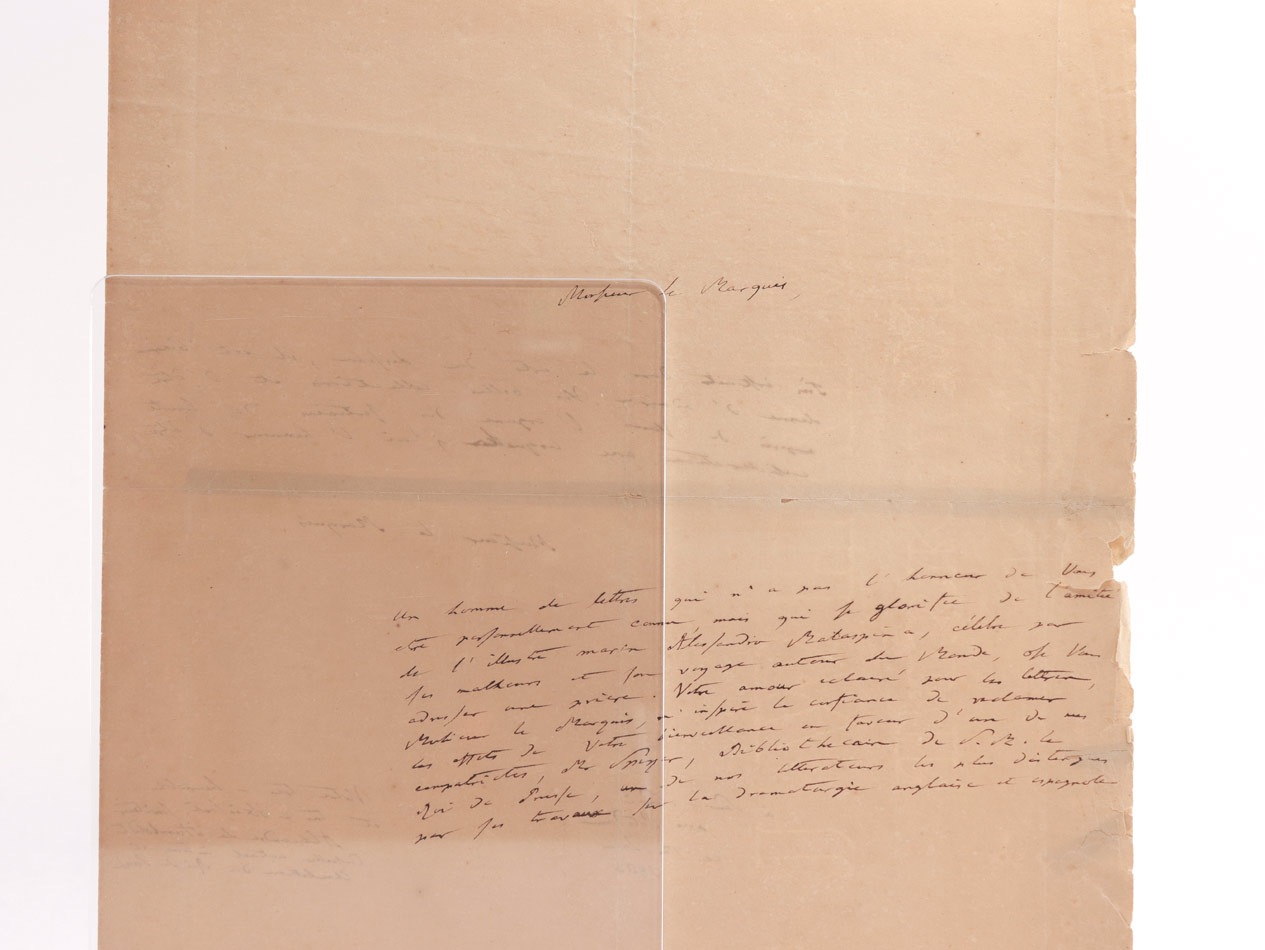 Monsieur le Marquis,
Un homme de lettres qui n'a pas l'honneur de Vous
etre personnellement connu, mais qui se glorifie de l'amitié
de l'illustre marin Alessandro Malaspina, célèbre par
ses malheurs et son voyage autour du Monde, ose Vous
adresser une prière. Votre amour eclairé pour les lettres,
Monsieur le Marquis, m'inspire la confiance de reclamer
les effets de Votre bienveillance en faveur d'un de mes
compatriotes, Mr Spiker, Bibliothecaire de S. M. le
Roi de Prusse, un de nos litterateurs les plus distingués
par ses travaux sur la dramaturgie anglaise et espagnole